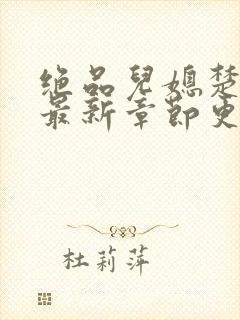 绝品儿媳楚
最新章节更
杜莉萍